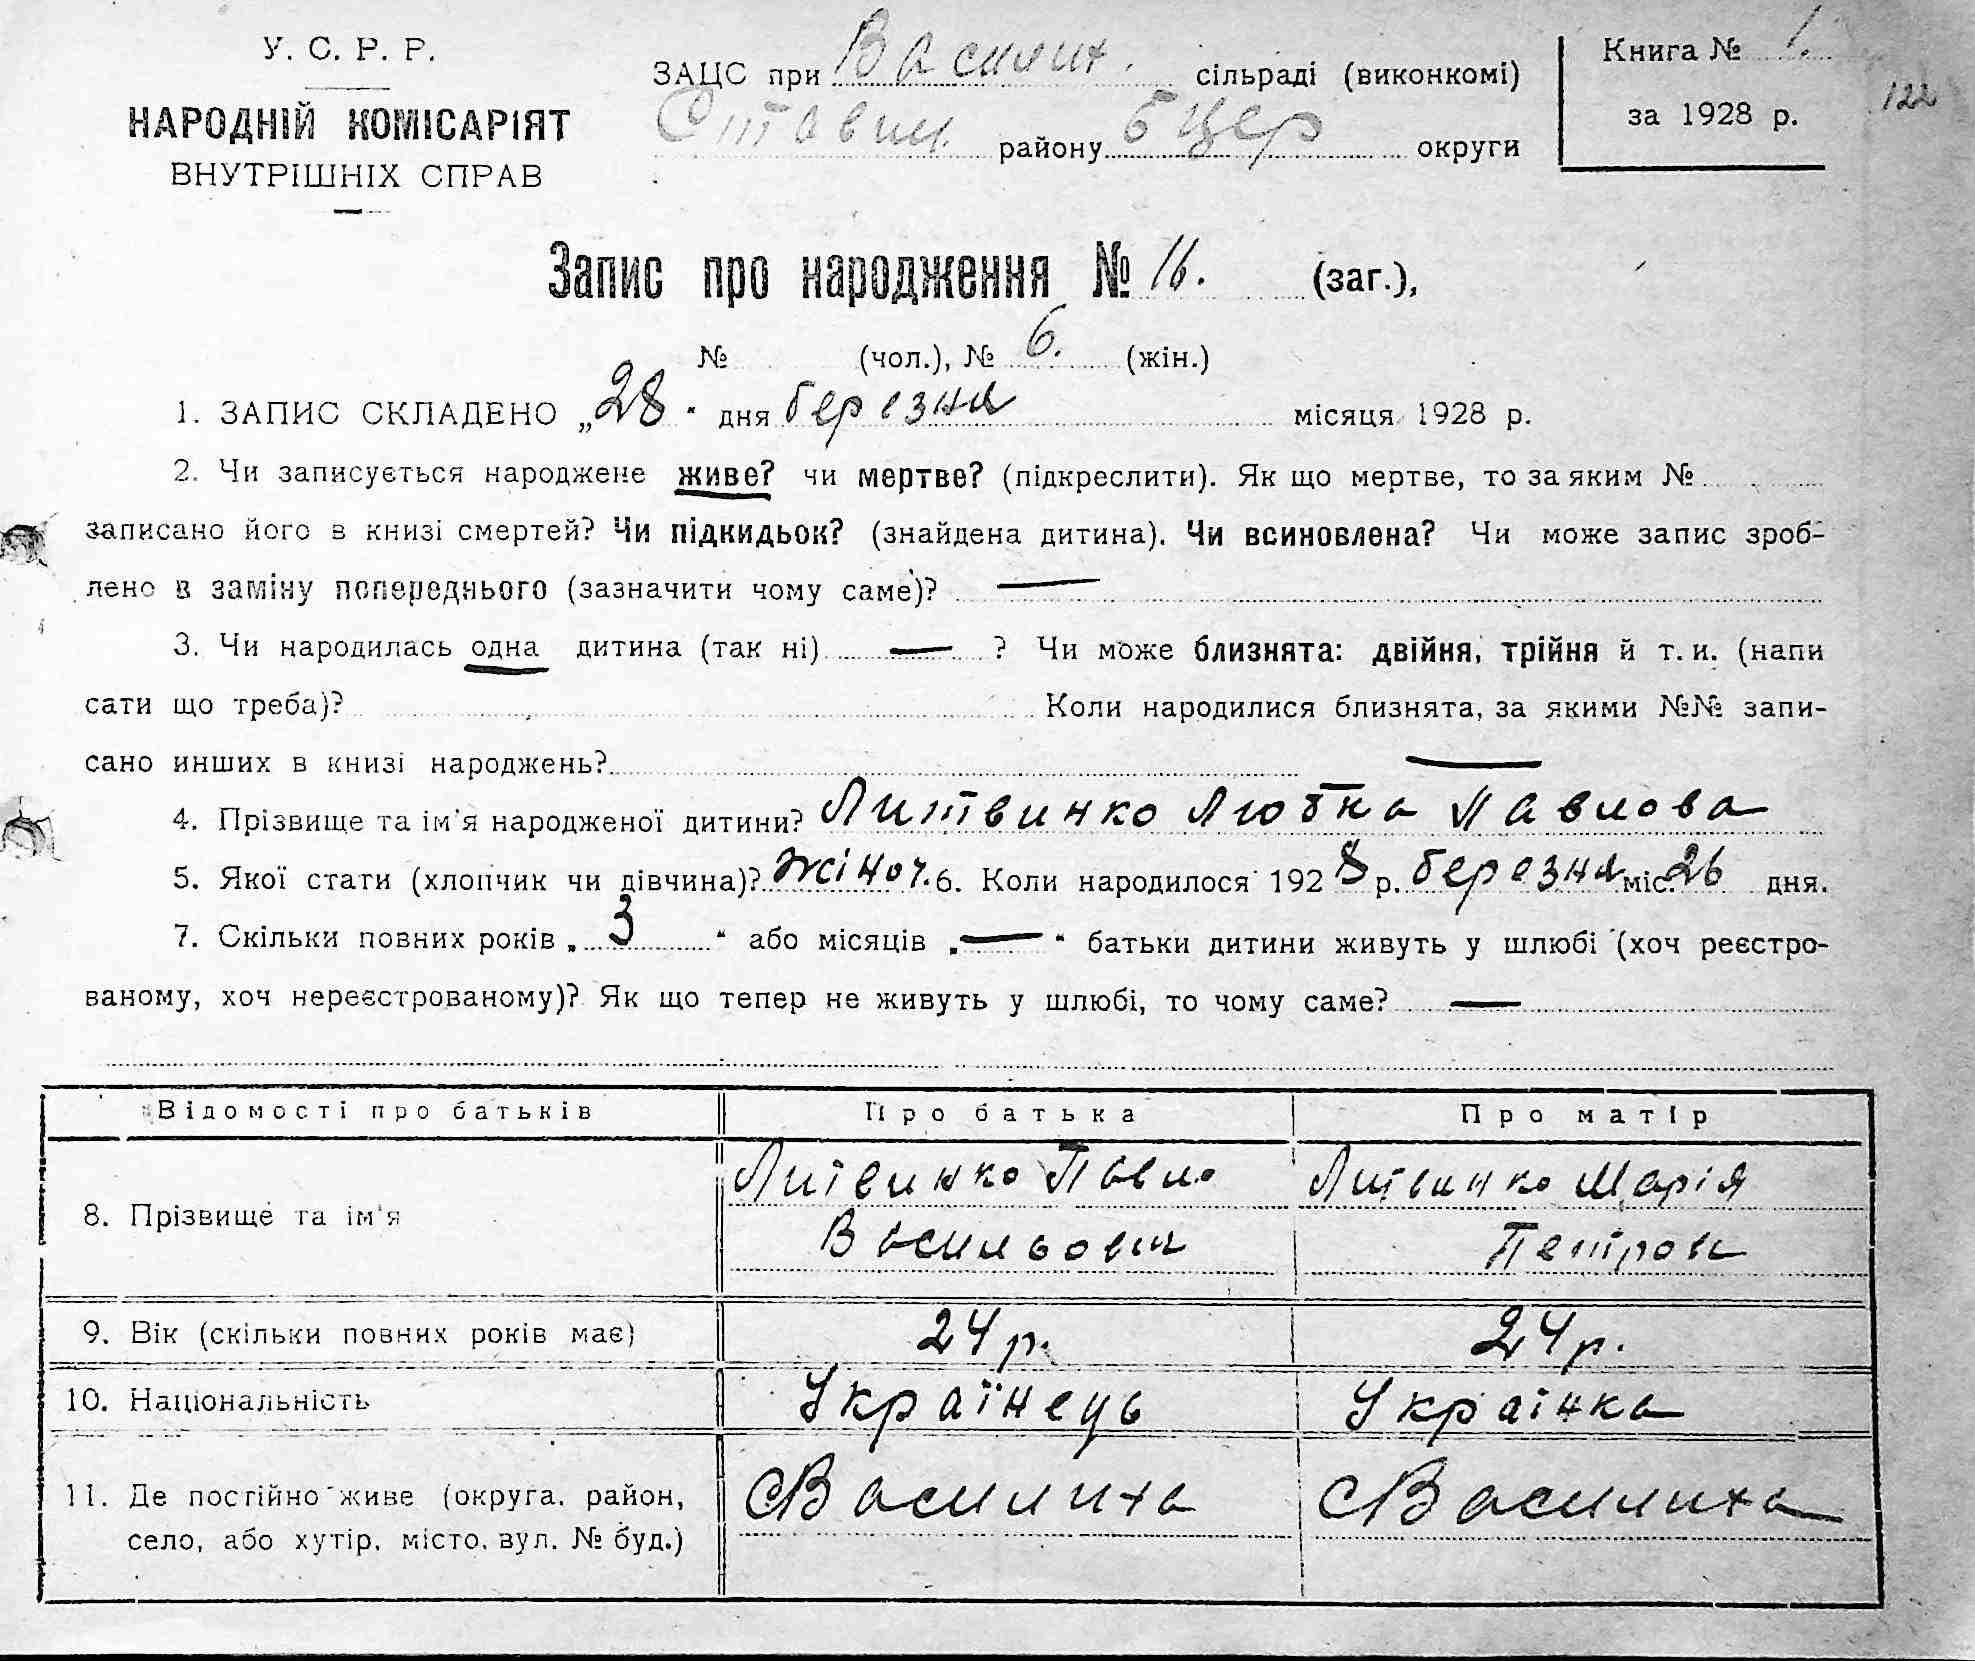 У. С. Р. Р.
НАРОДНІЙ КОМІСАРІЯТ
ВНУТРІШНІХ СПРАВ
ЗАЦС при Василих. сільраді (виконкомі)
Ставищ. району БЦер округи
Книга № 1.
за 1928 р.
122
Запис про народження № 16. (заг.),
№ (чол.), № 6. (жін.)
1. ЗАПИС СКЛАДЕНО „28" дня березня місяця 1928 р.
2. Чи записується народжене живе? чи мертве? (підкреслити). Як що мертве, то за яким №
записано його в книзі смертей? Чи підкидьок? (знайдена дитина). Чи всиновлена? Чи може запис зроб-
лено в заміну попереднього (зазначити чому саме)? —
3. Чи народилась одна дитина (так ні) — ? Чи може близнята: двійня, трійня й т. и. (напи
сати що треба)? Коли народилися близнята, за якими №№ запи-
сано инших в книзі народжень? —
4. Прізвище та ім'я народженої дитини? Литвинко Любка Павлова
5. Якої стати (хлопчик чи дівчина)? жіноч. 6. Коли народилося 1928 р. березня міс. 26 дня.
7. Скільки повних років „3" або місяців „—" батьки дитини живуть у шлюбі (хоч реєстро-
ваному, хоч нереєстрованому)? Як що тепер не живуть у шлюбі, то чому саме? —
Відомості про батьків Про батька Про матір
8. Прізвище та ім'я Литвинко Павло Васильович Литвинко Марія Петрова
9. Вік (скільки повних років має) 24 р. 24 р.
10. Національність Українець Українка
11. Де постійно живе (округа, район, с Василиха с Василиха
село, або хутір, місто, вул. № буд.)